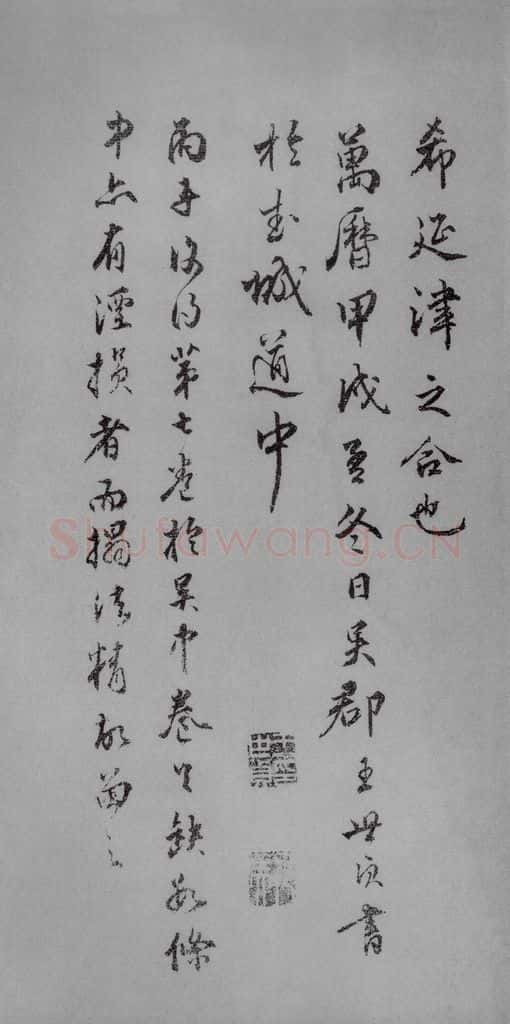 希延津之合也
萬曆甲戌孟冬日吳郡王世貞書
於城道中
丙子得第七卷於吳中卷缺數條
中亦有湮損者而搨法精故留之
Shufawang.CN